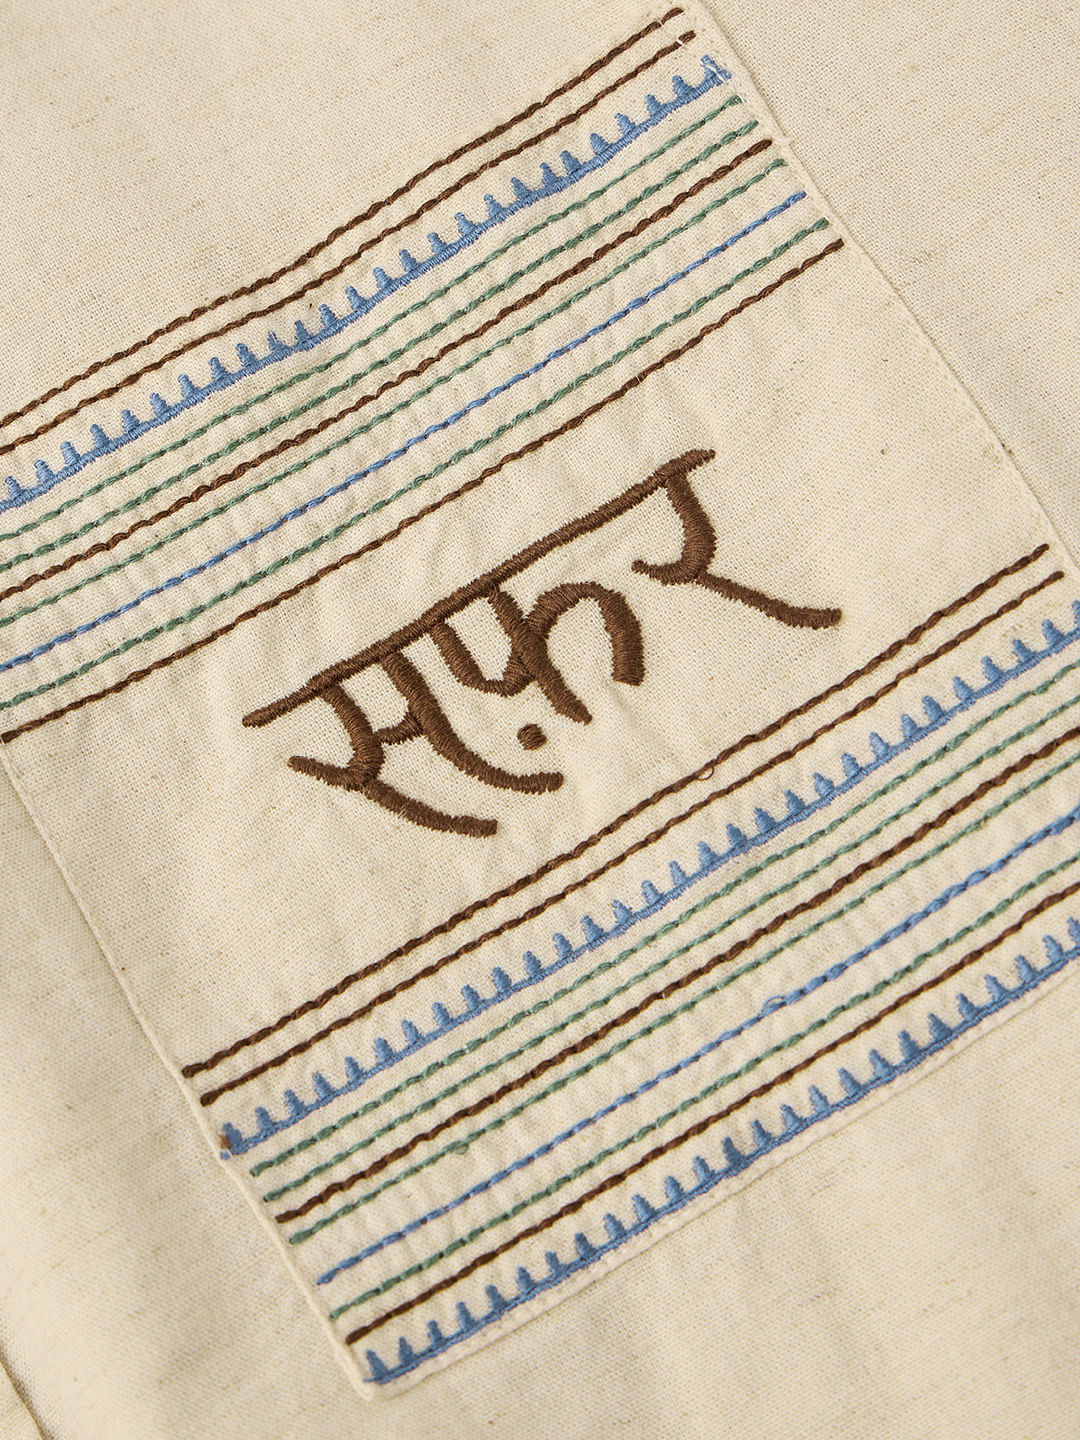 सफ़र